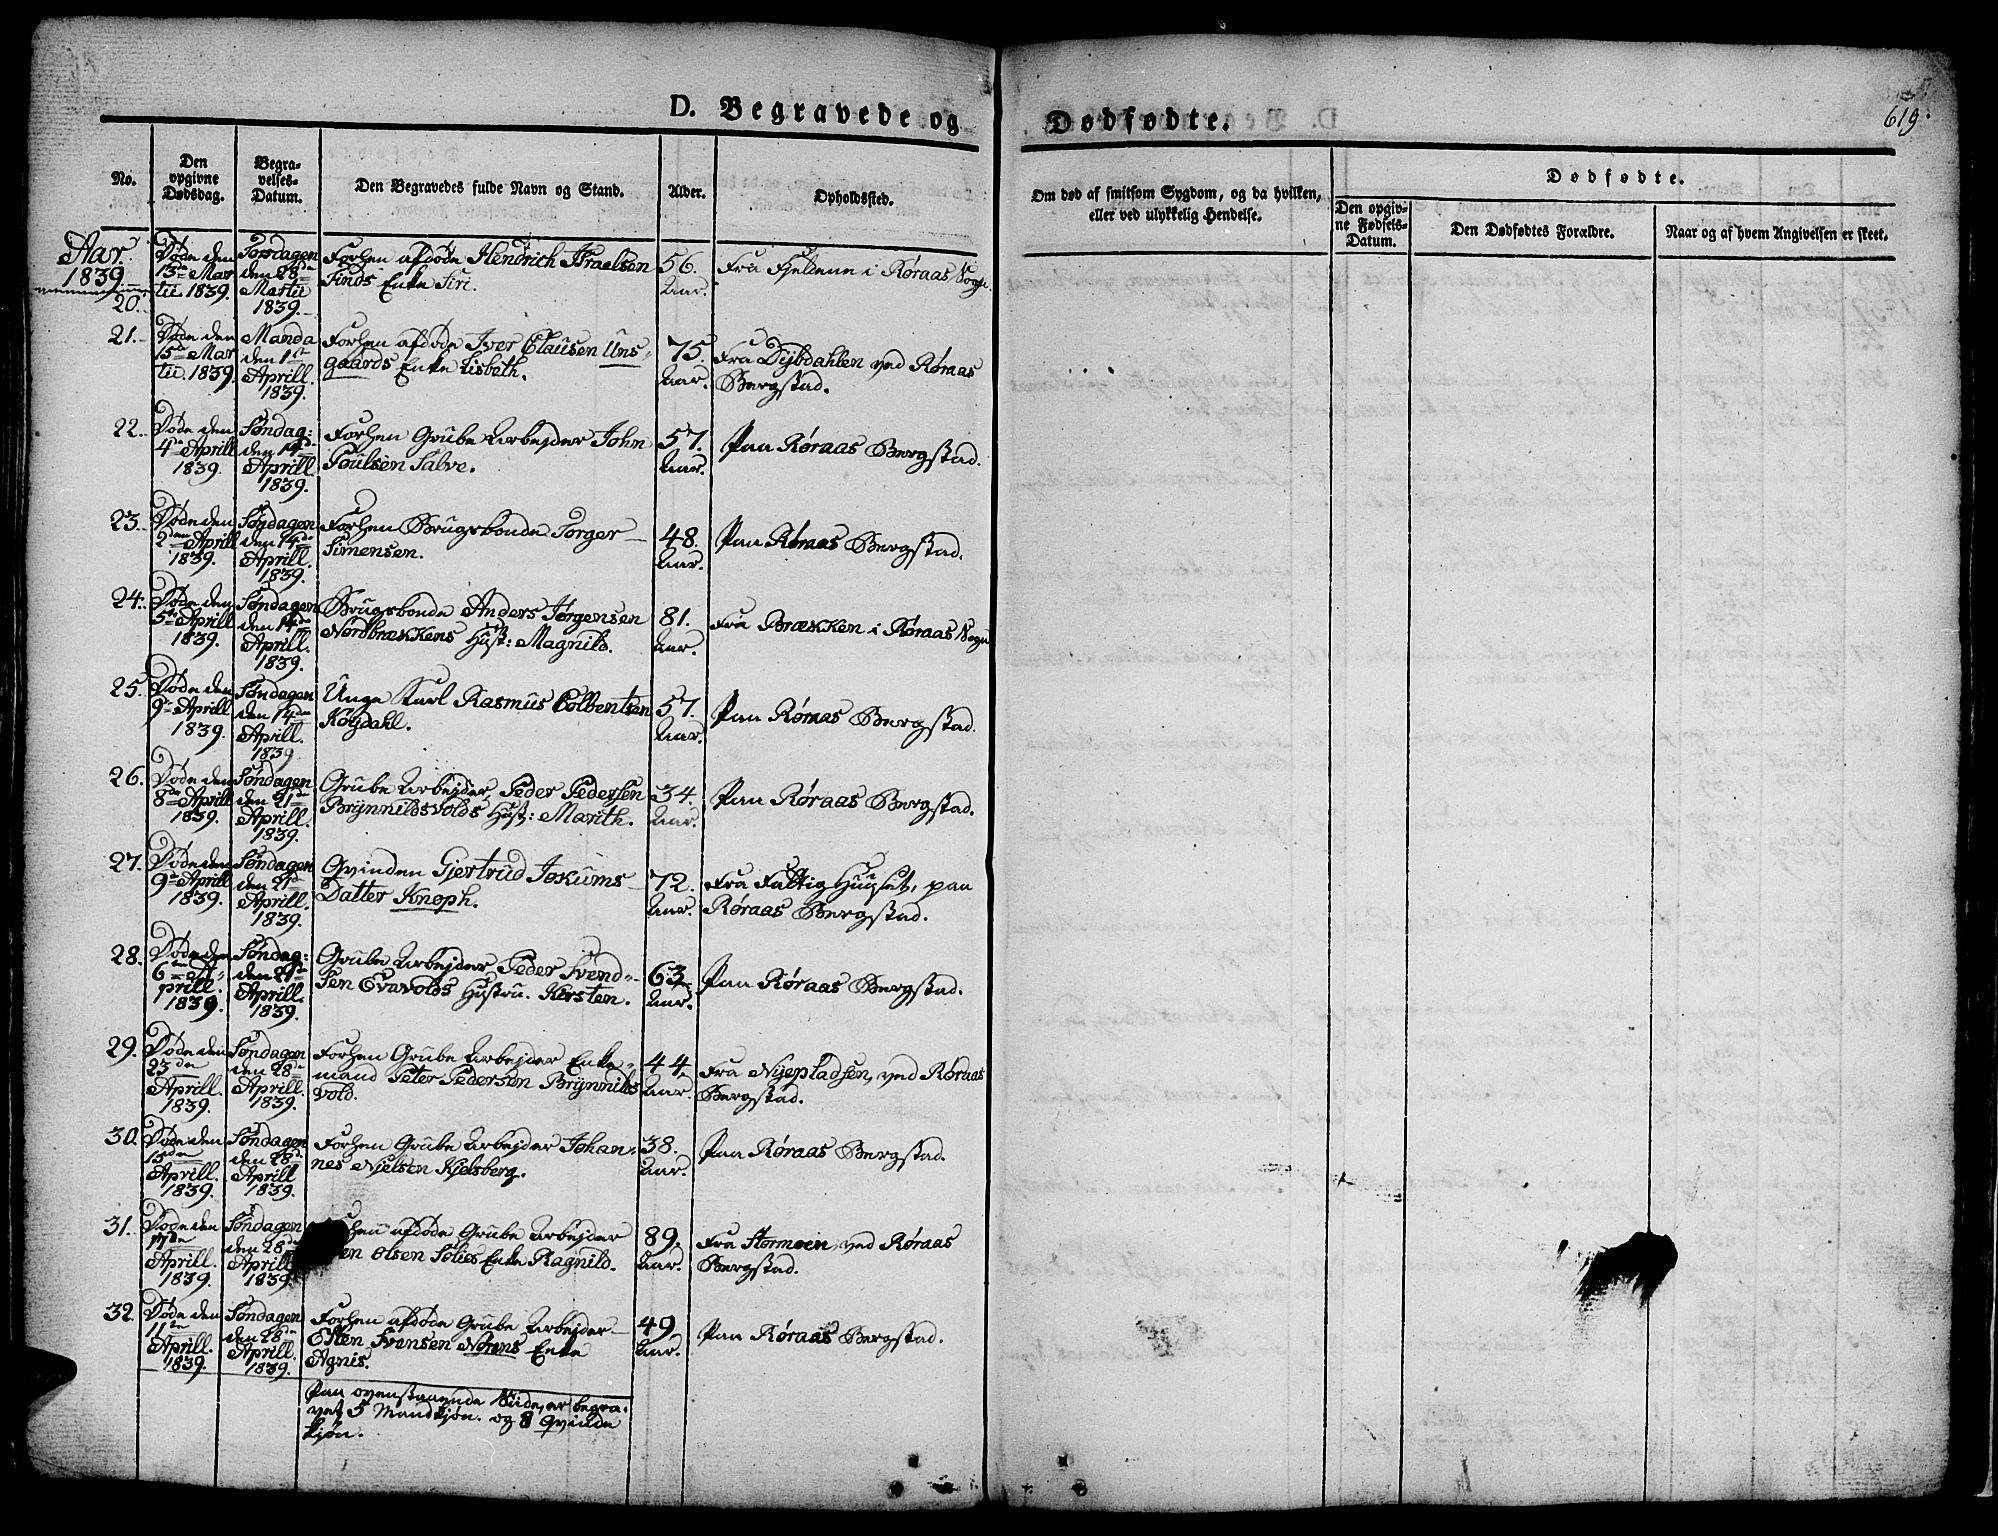 D. Begravede og Dødfødte.
619.
No.
Den opgivne Dødsdag.
Begravelses-Datum.
Den Begravedes fulde Navn og Stand.
Alder.
Opholdssted.
Om død af smitsom Sygdom, og da hvilken,
eller ved ulykkelig Hendelse.
Dødfødte.
Den opgivne Fødsels-Datum.
Den Dødfødtes Forældre.
Naar og af hvem Angivelsen er skeet.
Aar
1839.
20.
Døde den
13de Mar
tii. 1839.
Torsdagen
den 28de
Martii
1839.
Forhen afdøde Hendrich Israelsen
Finds Enke Siri.
56.
Aar.
Fra Fjeldene i Røraas Sogn.
21.
Døde den
15de Mar
tii. 1839.
Manda
den 1ste
Aprill.
1839.
Forhen afdøde Iver Clausen Uns-
gaards Enke Lisbeth.
75.
Aar.
Fra Dybdahlen ved Røraas
Bergstad.
22.
Døde den
4de Aprill
1839.
Søndag:
den 14de
Aprill.
1839.
Forhen Grube Arbejder John
Poulsen Salve.
57.
Aar.
Paa Røraas Bergstad.
23.
Døde den
2den Aprill
1839.
Søndagen
den 14de
Aprill.
1839.
Forhen Brugsbonde Torger
Simensen.
48.
Aar.
Paa Røraas Bergstad.
24.
Døde den
5te Aprill
1839.
Søndagen
den 14de
Aprill.
1839.
Brugsbonde Anders Jørgensen
Nordbrækkens Hust: Magnild.
81.
Aar.
Fra Brækken i Røraas Sogn
25.
Døde den
9de Aprill
1839.
Søndagen
den 14de
Aprill.
1839.
Unge Karl Rasmus Colbentsen
Køydahl.
57.
Aar.
Paa Røraas Bergstad.
26.
Døde den
8de Aprill
1839.
Søndagen
den 21de
Aprill.
1839.
Grube Arbejder Peder Pedersen
Brynnildsvolds Hust: Marith.
34.
Aar.
Paa Røraas Bergstad.
27.
Døde den
9de Aprill
1839.
Søndagen
den 21de
Aprill.
1839.
Qvinden Gjertrud Jokums
Datter Knoph.
72.
Aar.
Fra Fattig Huuset, paa
Røraas Bergstad.
28.
Døde den
6te A-
prill.
1839.
Søndag:
den 21de
Aprill.
1839.
Grube Arbejder Peder Svend-
sen Evavolds Hustru. Kirsten.
63.
Aar.
Paa Røraas Bergstad.
29.
Døde den
23de
Aprill.
1839.
Søndagen
den 28de
Aprill.
1839.
Forhen Grube Arbejder Enke-
mand Peter Pedersen Brynnilds
vold.
44.
Aar.
Fra Nyepladsen, ved Røraas
Bergstad.
30.
Døde den
13de
Aprill.
1839.
Søndagen
den 28de
Aprill
1839.
Forhen Grube Arbejder Johan-
nes Nielsen Kjelsberg.
38.
Aar.
Paa Røraas Bergstad.
31.
Døde den
17de
Aprill.
1839.
Søndagen
den 28de
Aprill.
1839.
afdøde Grube Arbejder
Olsen Enke Ragnild.
89.
Aar.
Fra Stormoen, ved Røraas
Bergstad.
32.
Døde den
11te
Aprill.
1839.
Søndagen
den 28de
Aprill.
1839.
Forhen afdøde Grube Arbejder
Esten Svensen Enke
Agnis.
49
Aar.
Paa Røraas Bergstad.
Paa ovenstaaende Siide, er begra-
vet 5 Mandkjøn. og 8 Qvinde
kjøn.